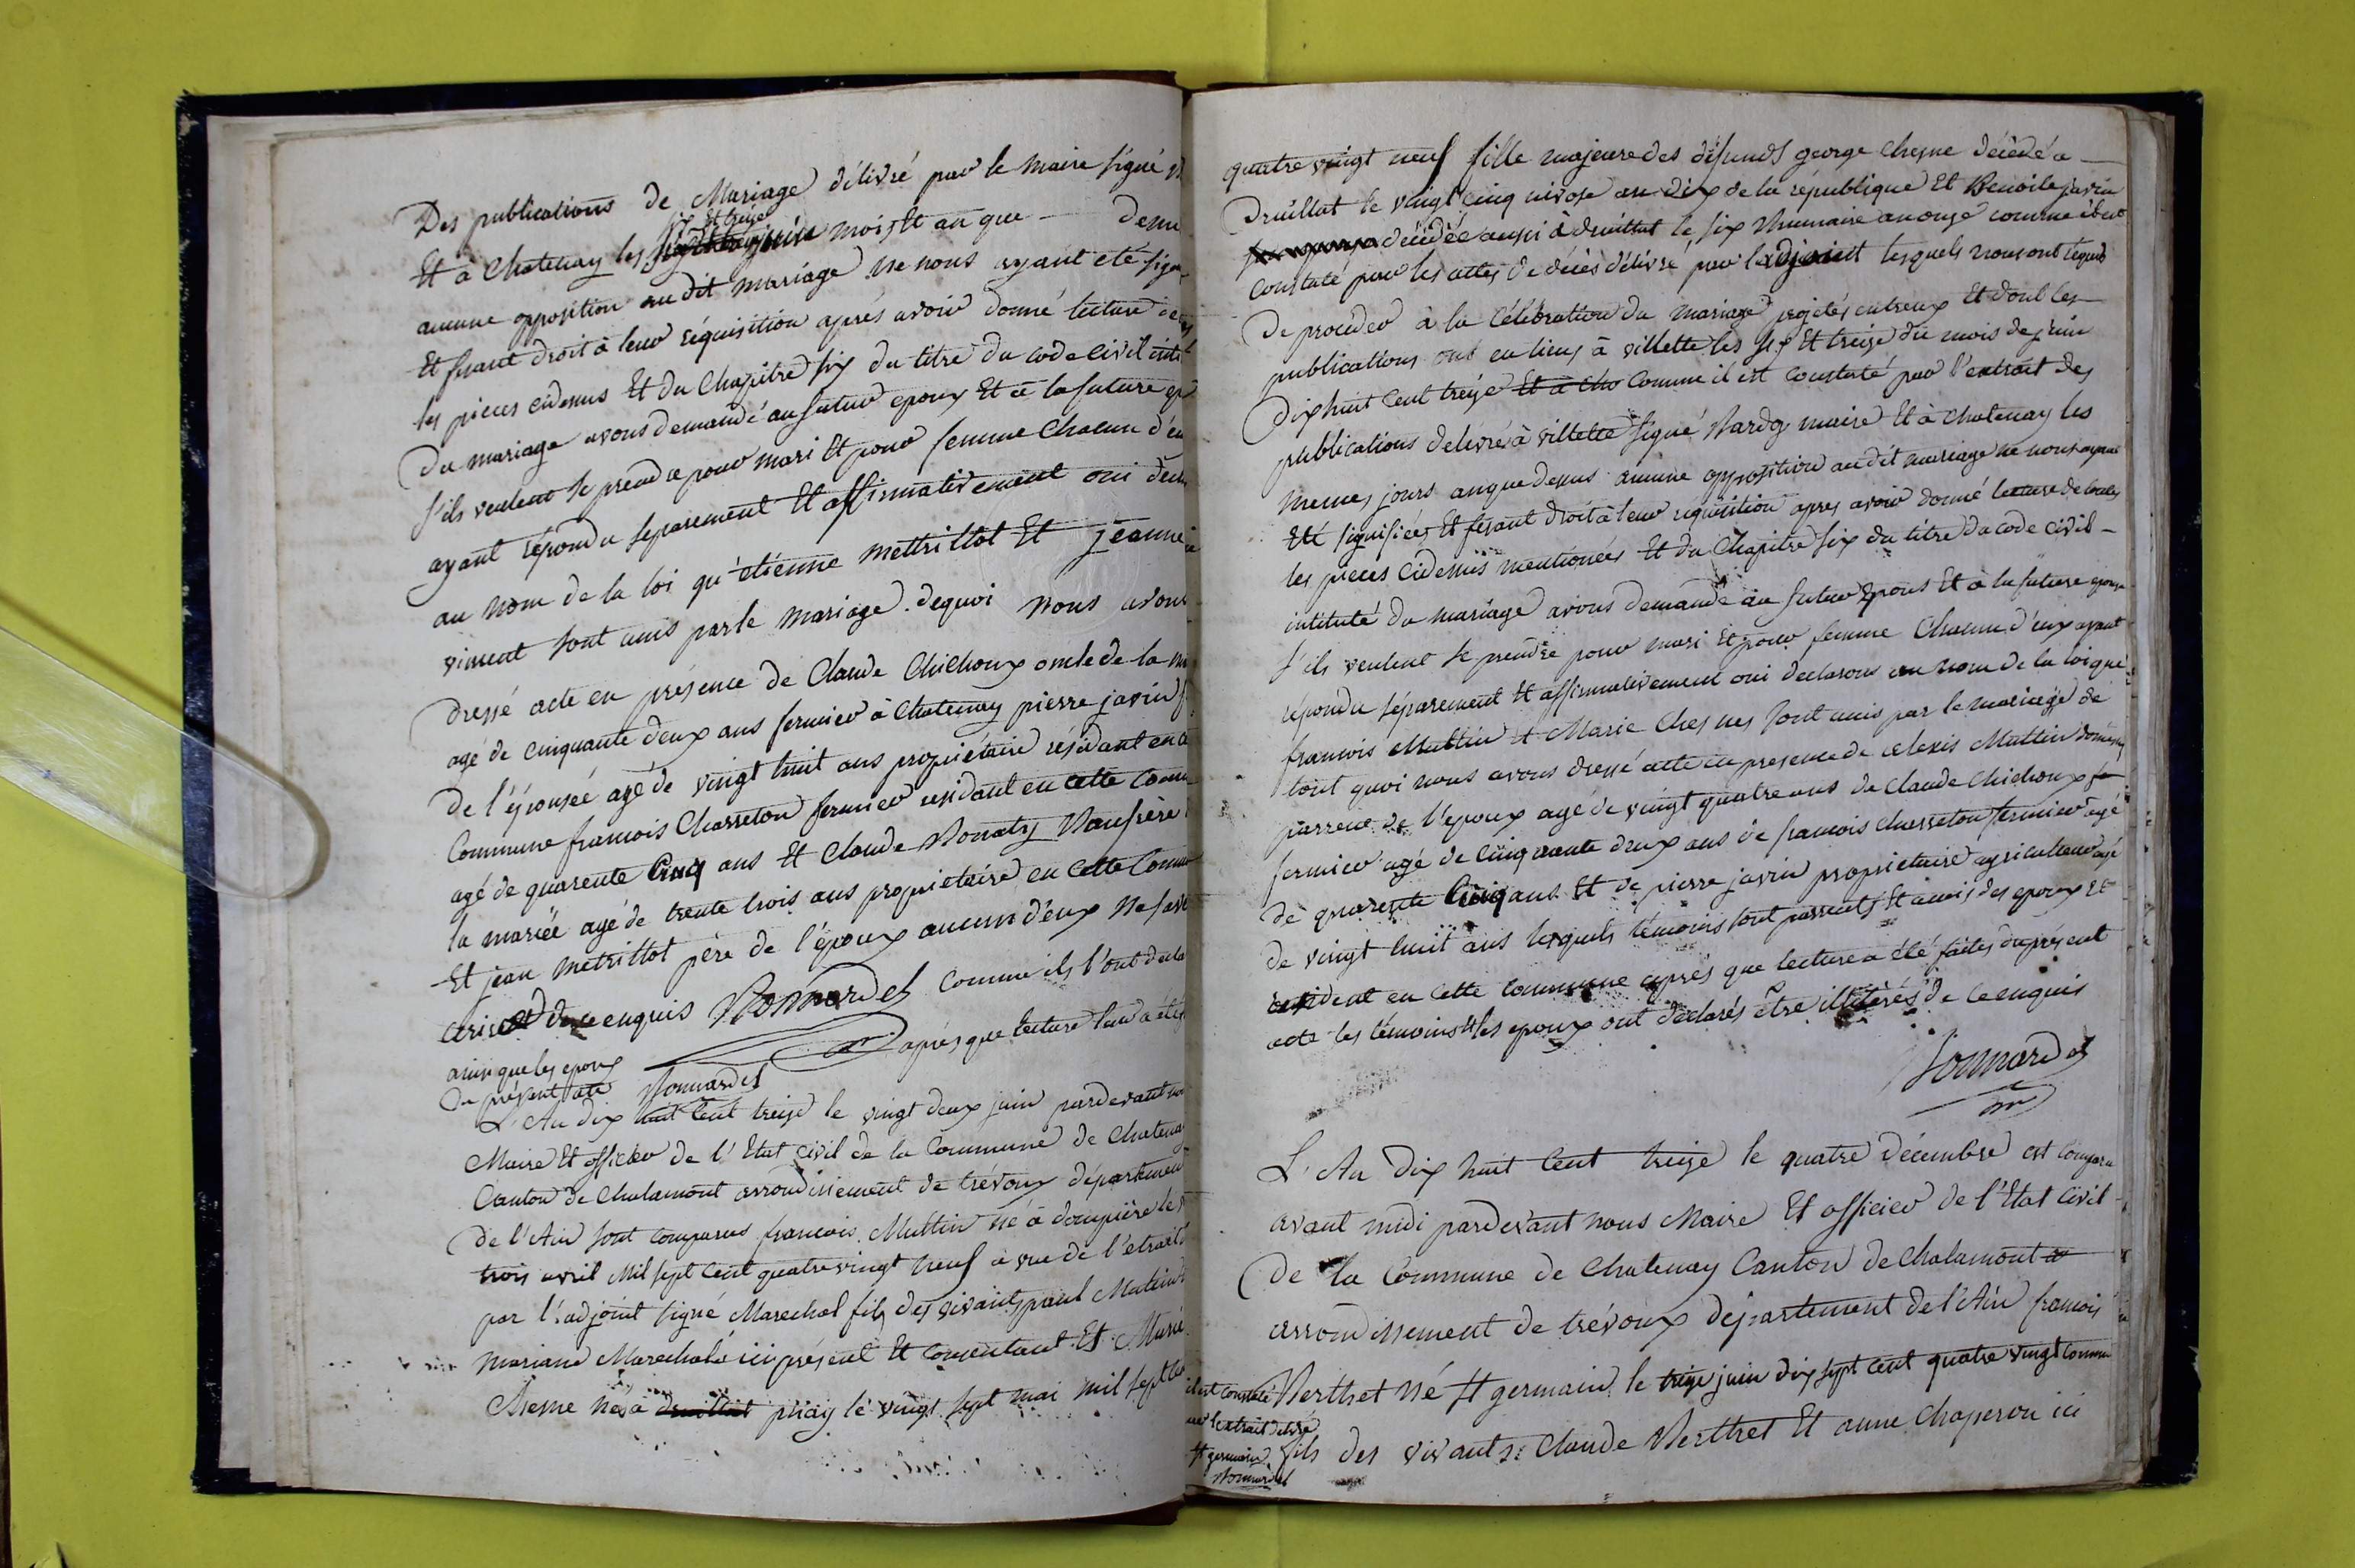 Des publications de Mariage délivré par le maire signé
six et treize
Et à Chatenay les juin mois Et an que dessus
aucune opposition au dit mariage ne nous ayant eté signi
Et fesant droit à leur réquisition aprés avoir donné lecture de
les pieces cidessus Et du Chapitre six du titre du code civil inti
Du mariage avons demandé au futur epoux Et à la future ep
s'ils veulent se prendre pour mari Et pour femme Chacun d'eu
ayant répondu separement Et affirmativement oui decl
au nom de la loi qu'etienne mettrillot Et jeanne
vincent sont unis par le mariage. dequoi nous avons
Dressé acte en présence de Claude Chichoux oncle de la
agé de cinquante deux ans fermier à Chatenay pierre javin
De l'épousée agé de vingt huit ans propriétaire résidant en
Commune francois Chasseton fermier residant en cette Comm
agé de quarente Cinq ans Et Claude Bonaty Beaufrère
la mariée agé de trente trois ans propriétaire en cette Comm
Et jean metrillot père de l'époux aucun d'eux ne
de ce enquis Bonnardel Comme ils l'ont decla
ainsi que les epoux aprés que lecture leur a été
Du présent acte Bonnardel
L'An dix huit Cent treize le vingt deux juin pardevant
Maire Et officier de l'Etat civil de la Commune de Chatenay
Canton de Chalamont arrondissement de trévoux département
De l'Ain sont comparus francois Muttin né à dompiere le
trois avril Mil sept Cent quatrevingt neuf a vue de l'etrait
par l'adjoint signé Marechal fils des vivants paul Mutin
mariane Marechal ici présent Et consentant Et Marie
Chesne née à druillat priay le vingt sept mai mil sept
quatre vingt neuf fille majeure des défunds george Chesne décédé a
Druillat le vingt cinq nivose an dix de la république Et Benoite javin
decédée aussi à druillat le six Brumaire an onze comme il est
constaté par les actes de décès délivré par l'adjoint lesquels nous ont requis
De procéder à la Célébration du mariage projetés entreux Et dont les
publications ont eu lieux à villette les six Et treize du mois de juin
Dix huit Cent treize Et à Cha Comme il est constaté par l'extrait des
publications delivré à villette signé maire Et à chatenay les
memes jours anque dessus aucune opposition audit mariage ne nous ayant
Eté signifiées Et fesant droit à leur requisition apres avoir donné lecture de toutes
les pieces cidessus mentionées Et du Chapitre six du titre du code civil
intitulé du mariage avons demandé au futur Epous Et à la future epouse
s'ils veulent se prendre pour mari Et pour femme Chacun d'eux ayant
répondu séparement Et affirmativement oui declarons au nom de la loi que
francois Muttin et Marie Chesnes sont unis par le mariage de
tout quoi nous avons dressé acte en presence de alexis Muttin
parrent de l'epoux agé de vingt quatre ans de Claude Chichoux
fermier agé de cinquante deux ans de francois chasseton fermier agé
de quarente Cinq ans Et de pierre javin propriétaire agriculteur agé
de vingt huit ans lesquels témoins sont parrents Et amis des epoux Et
résident en cette commune aprés que lecture a été faites du présent
acte les témoins Et les epoux ont déclarés être illitérés de ce enquis
Bonnardel
L'An Dix huit Cent treize le quatre décembre est comparu
avant midi pardevant nous Maire Et officier de l'Etat Civil
De la Commune de Chatenay Canton de Chalamont
arrondissement de trévoux département de l'Ain francois
Berthet né St germain le treize juin dix sept cent quatre vingt comme
il est constaté
par l'extrait délivré
St germain
Bonnardel
fils des vivants Claude Berthet Et anne Chaperon ici